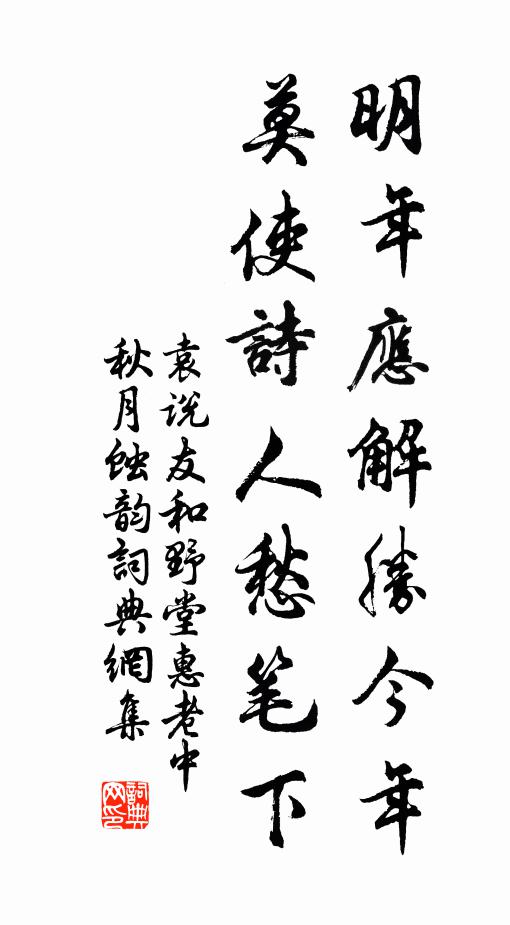 明年應解勝今年
莫使詩人愁笔下
袁说友和野堂惠老中
秋月蚀韵詞典網集
詞典
网印